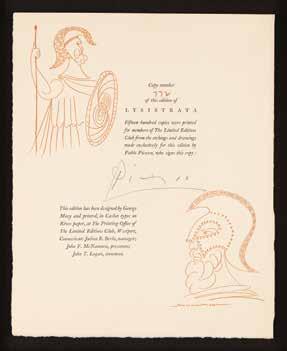 Copy number
of this edition of
LYSISTRATA
Fifteen hundred copies were printed
for members of The Limited Editions
Club from the etchings and drawings
made exclusively for this edition by
Pablo Picasso, who signs this copy:
Picasso
This edition has been designed by George
Macy and printed, in Caslon types on
Rives paper, at The Printing Office of
The Limited Editions Club, Westport,
Connecticut: Julian B. Berla, manager;
John F. McNamara, pressman;
John T. Logan, stoneman.